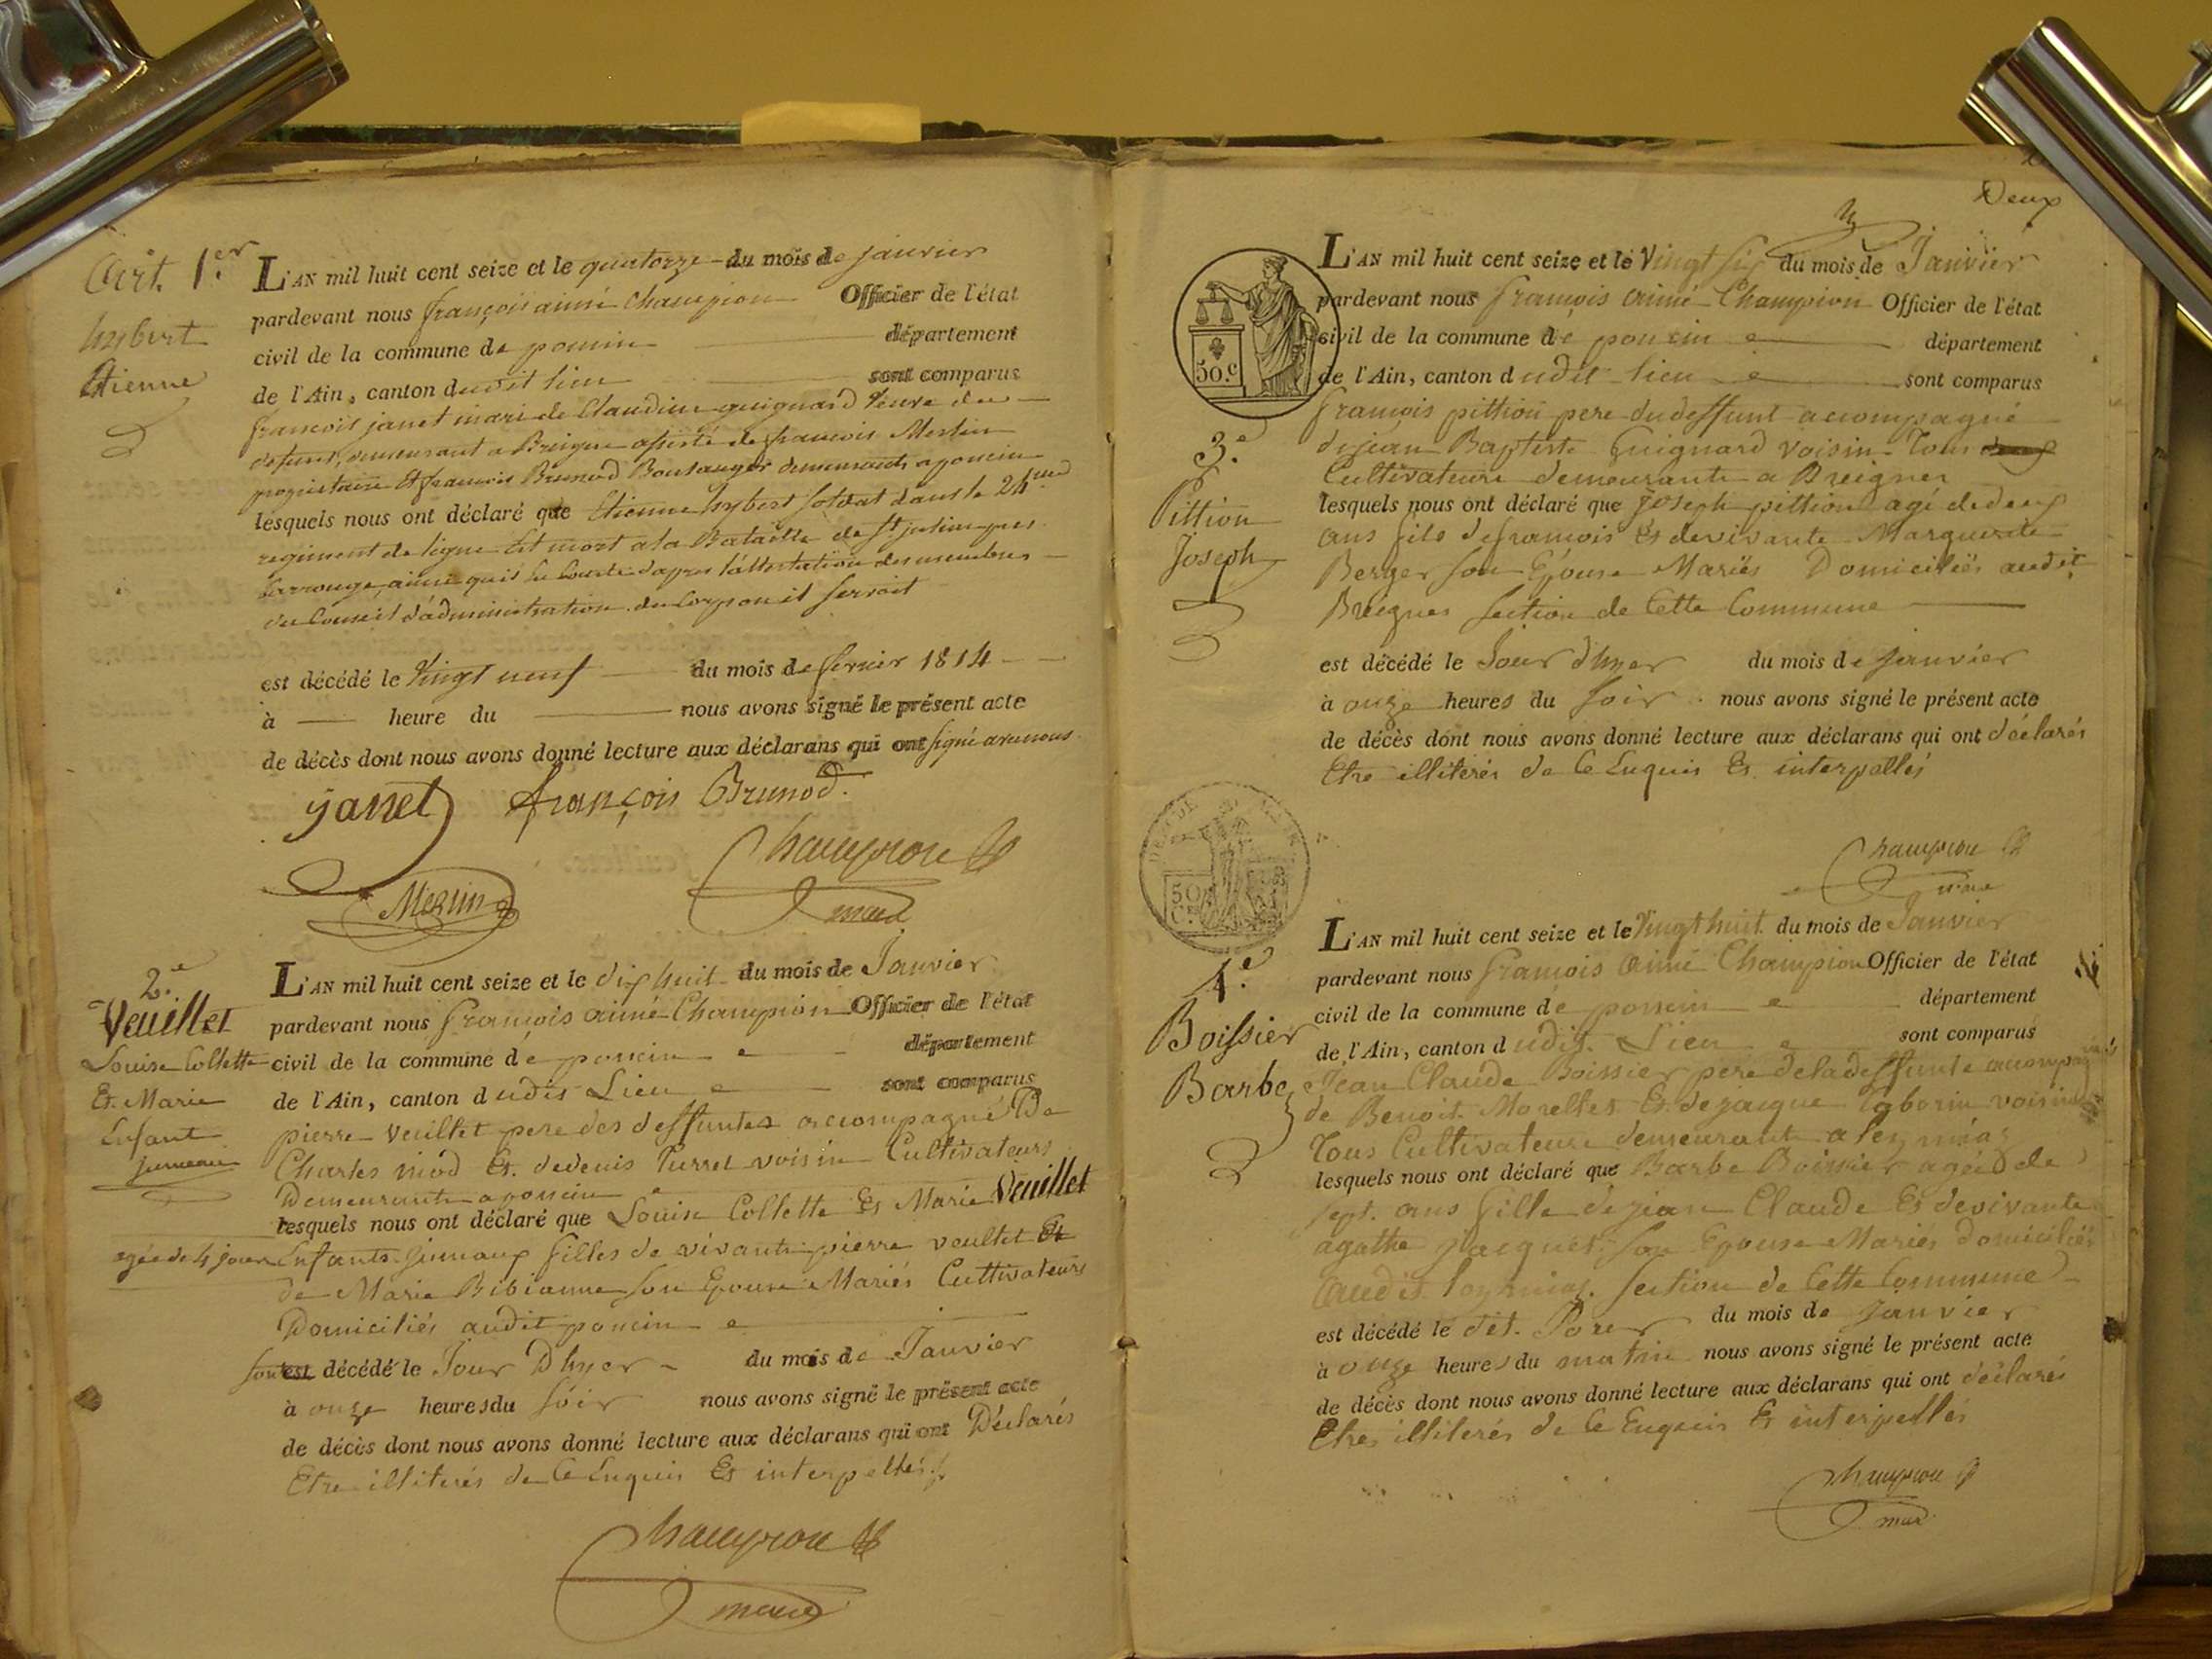 Art. 1.er
hybert
Etienne
L'AN mil huit cent seize et le quatorze du mois de janvier
pardevant nous françois aimé Champion Officier de l'état
civil de la commune de poncin département
de l'Ain, canton dudit lieu sont comparus
françois janet mari de Claudine guignard veuve du
défunt, demeurant a Breigne assisté de françois Merlin
propriétaire Et francois Brunod Boulanger demeurants a poncin
lesquels nous ont déclaré que Etienne hybert soldat dans le 24me
regiment de ligne Est mort a la Bataille de St julien pres
Carrouge, ainsi qu'il en Conste d'apres l'attestation des membres
du Conseil d'administration du Corps ou il servoit
est décédé le Vingt neuf du mois de fevrier 1814
à heure du nous avons signé le présent acte
de décès dont nous avons donné lecture aux déclarans qui ont signé avec nous
janet françois Brunod.
Champion
Merlin
maire
2.e
Veuillet
Louise Collette
Et Marie
Enfant
jumeau
L'AN mil huit cent seize et le dix huit du mois de Janvier
pardevant nous François aimé Champion Officier de l'état
civil de la commune de poncin département
de l'Ain, canton dudit Lieu sont comparus
pierre veuillet pere des deffuntes accompagné De
Charles niod Et de denis Purret voisin Cultivateurs
Demeurants a poncin
lesquels nous ont déclaré que Louise Collette Et Marie Veuillet
agée de 4 jours Enfants jumeaux filles de vivants pierre veuillet Et
de Marie Bibianne son Epouse Mariés Cultivateurs
Domiciliés audit poncin
sont est décédé le Jour Dhyer du mois de Janvier
à onze heures du soir nous avons signé le présent acte
de décès dont nous avons donné lecture aux déclarans qui ont Déclarés
Etre illiterés de Ce Enquis Et interpellés
Champion
maire
Deux
50.c
3.e
Pittion
Joseph
L'AN mil huit cent seize et le Vingt six du mois de Janvier
pardevant nous françois aimé Champion Officier de l'état
civil de la commune de poncin département
de l'Ain, canton dudit lieu sont comparus
françois pittion pere du deffunt accompagné
de jean Baptiste Guignard voisin Tous deux
Cultivateurs demeurants a Breignes
lesquels nous ont déclaré que Joseph pittion agé de deux
ans fils de francois Et de vivante Marguerite
Berger son Epouse Mariés Domiciliés audit
Breignes section de Cette Commune
est décédé le Jour d'hyer du mois de janvier
à onze heures du soir nous avons signé le présent acte
de décès dont nous avons donné lecture aux déclarans qui ont déclarés
Etre illiterés de Ce Enquis Et interpellés
Champion
maire
50
C.es
4.e
Boissier
Barbe
L'AN mil huit cent seize et le Vingt huit du mois de Janvier
pardevant nous françois aimé Champion Officier de l'état
civil de la commune de poncin département
de l'Ain, canton dudit Lieu sont comparus
Jean Claude Boissier pere de la deffunte accompagné
de Benoit Et de jacque voisins
Tous Cultivateurs demeurants a
lesquels nous ont déclaré que Barbe Boissier agée de
sept ans fille de jean Claude Et de vivante
agathe jacquet son Epouse Mariés domiciliés
audit section de Cette Commune
est décédé le dit Jour du mois de janvier
à onze heures du matin nous avons signé le présent acte
de décès dont nous avons donné lecture aux déclarans qui ont déclarés
Etre illiterés de Ce Enquis Et interpellés
Champion
maire